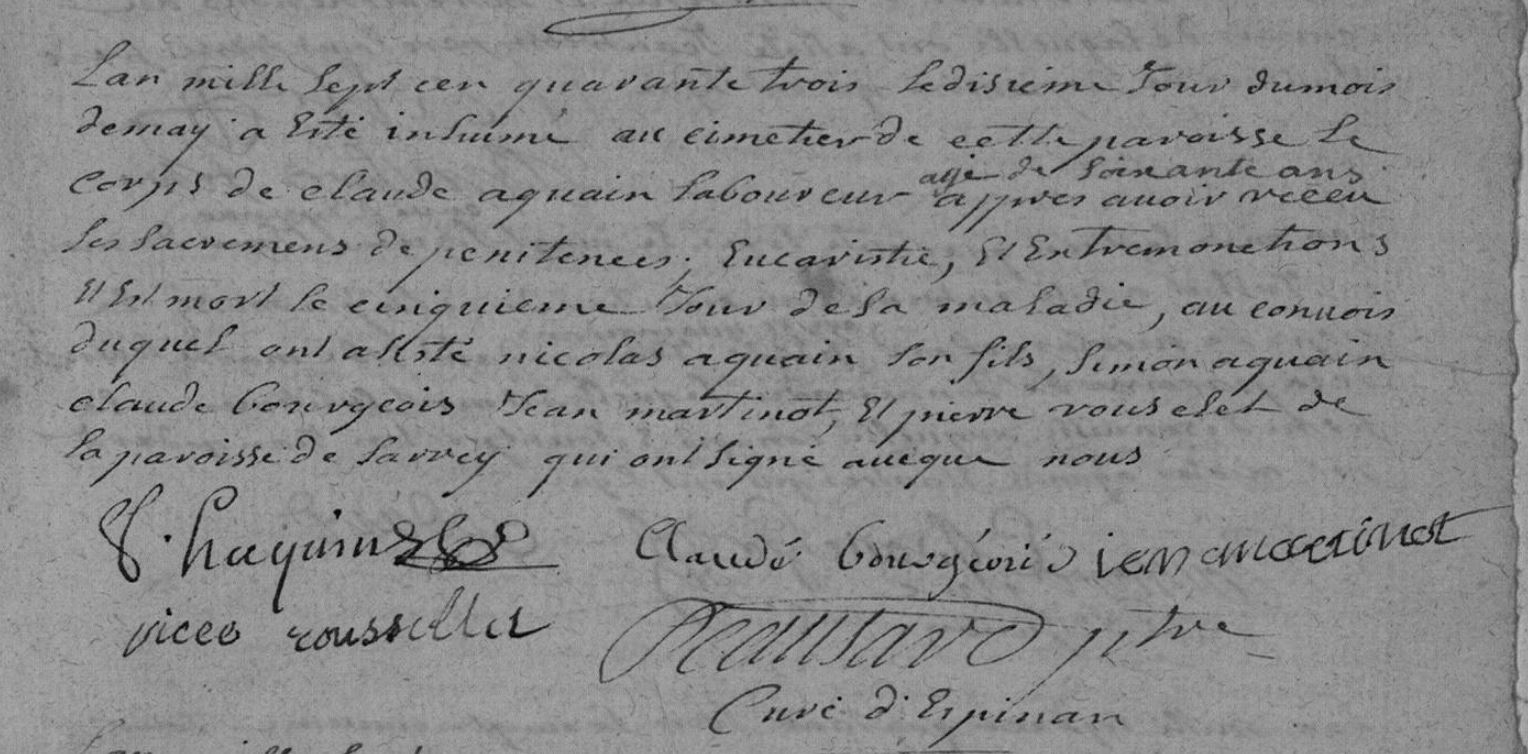 Lan mille sept cen quarante trois le disieme Jour du mois
de may a Esté inhumé au cimetier de cette paroisse le
agé de soixante ans
corps de claude aquain laboureur appres auoir receu
les sacremens de penitences, Eucaristie, Et Extremonctions
Et Est mort le cinquieme Jour de sa maladie, au conuois
duquel ont assisté nicolas aquain son fils, simon aquain
claude bourgeois Jean martinot, Et pierre rousselet de
la paroisse de sarrey qui ont signé aueque nous
S. haquin Claudé bourgéois ien martinot
piere rousellet ptre
Curé d'Espinan